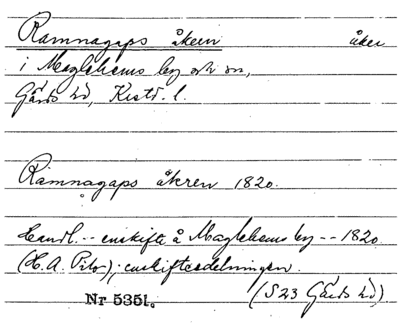 Ramnagaps åkern åker
i Maglehems by och sn,
Gärds hd, Krist. l.
Ramnagaps åkren 1820.
Handl. -- enskifte å Maglehems by -- 1820
(H. A. Pilo); enskiftesdelningen.
(S 23 Gärds hd)
Nr 5351.